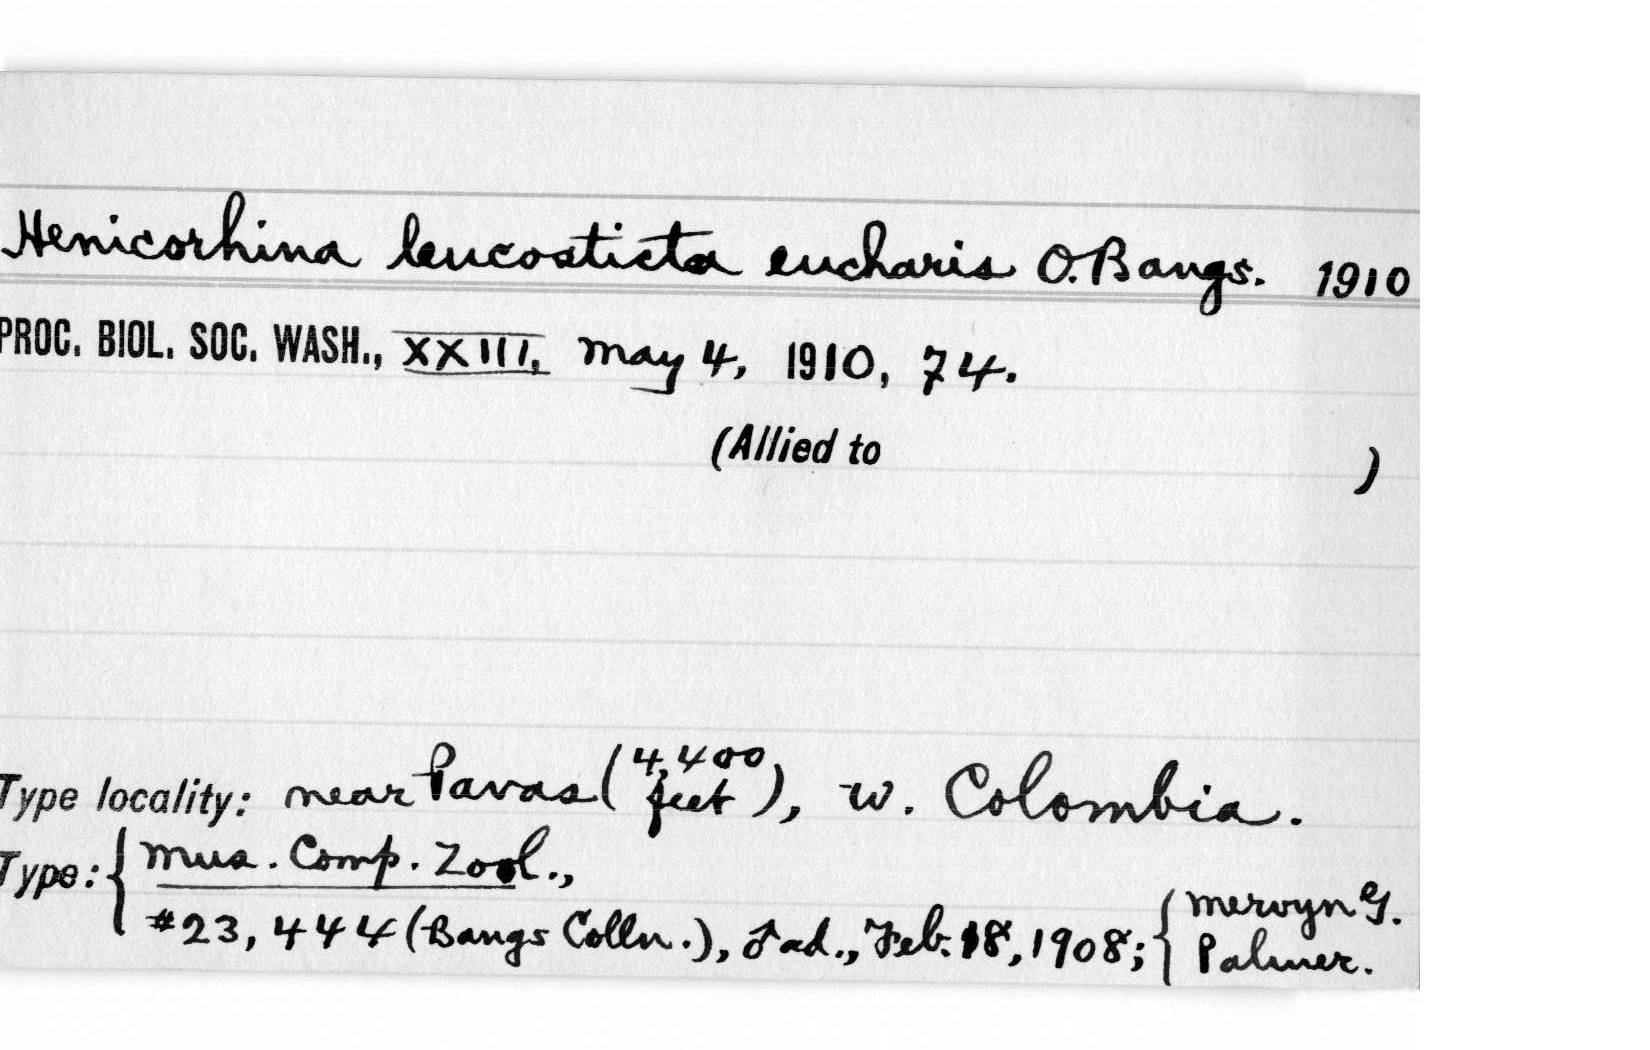 Henicorhina leucosticta eucharis O. Bangs. 1910
PROC. BIOL. SOC. WASH., XXIII, May 4, 1910, 74.
(Allied to )
Type locality: near Pavas (4,400 feet), w. Colombia.
Type: { Mus. Comp. Zool.,
#23,444 (Bangs Colln.), ♂ ad., Feb. 18, 1908; { Mervyn G. Palmer.